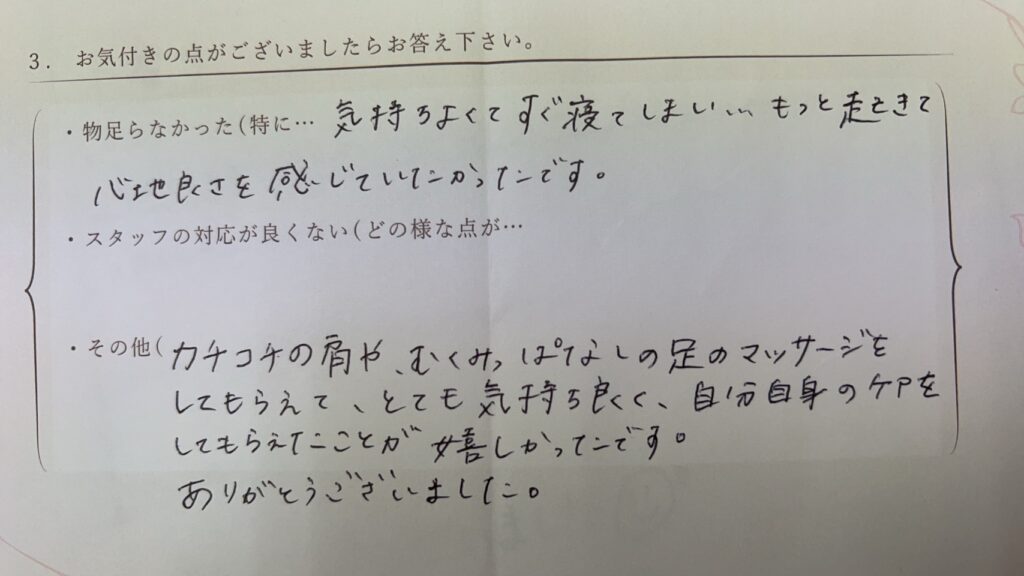 3. お気付きの点がございましたらお答え下さい。
・物足らなかった(特に… 気持ちよくてすぐ寝てしまい… もっと起きて
心地良さを感じていたかったです。
・スタッフの対応が良くない(どの様な点が…
・その他( カチコチの肩や、むくみっぱなしの足のマッサージを
してもらえて、とても気持ち良く、自分自身のケアを
してもらえたことが嬉しかったです。
ありがとうございました。